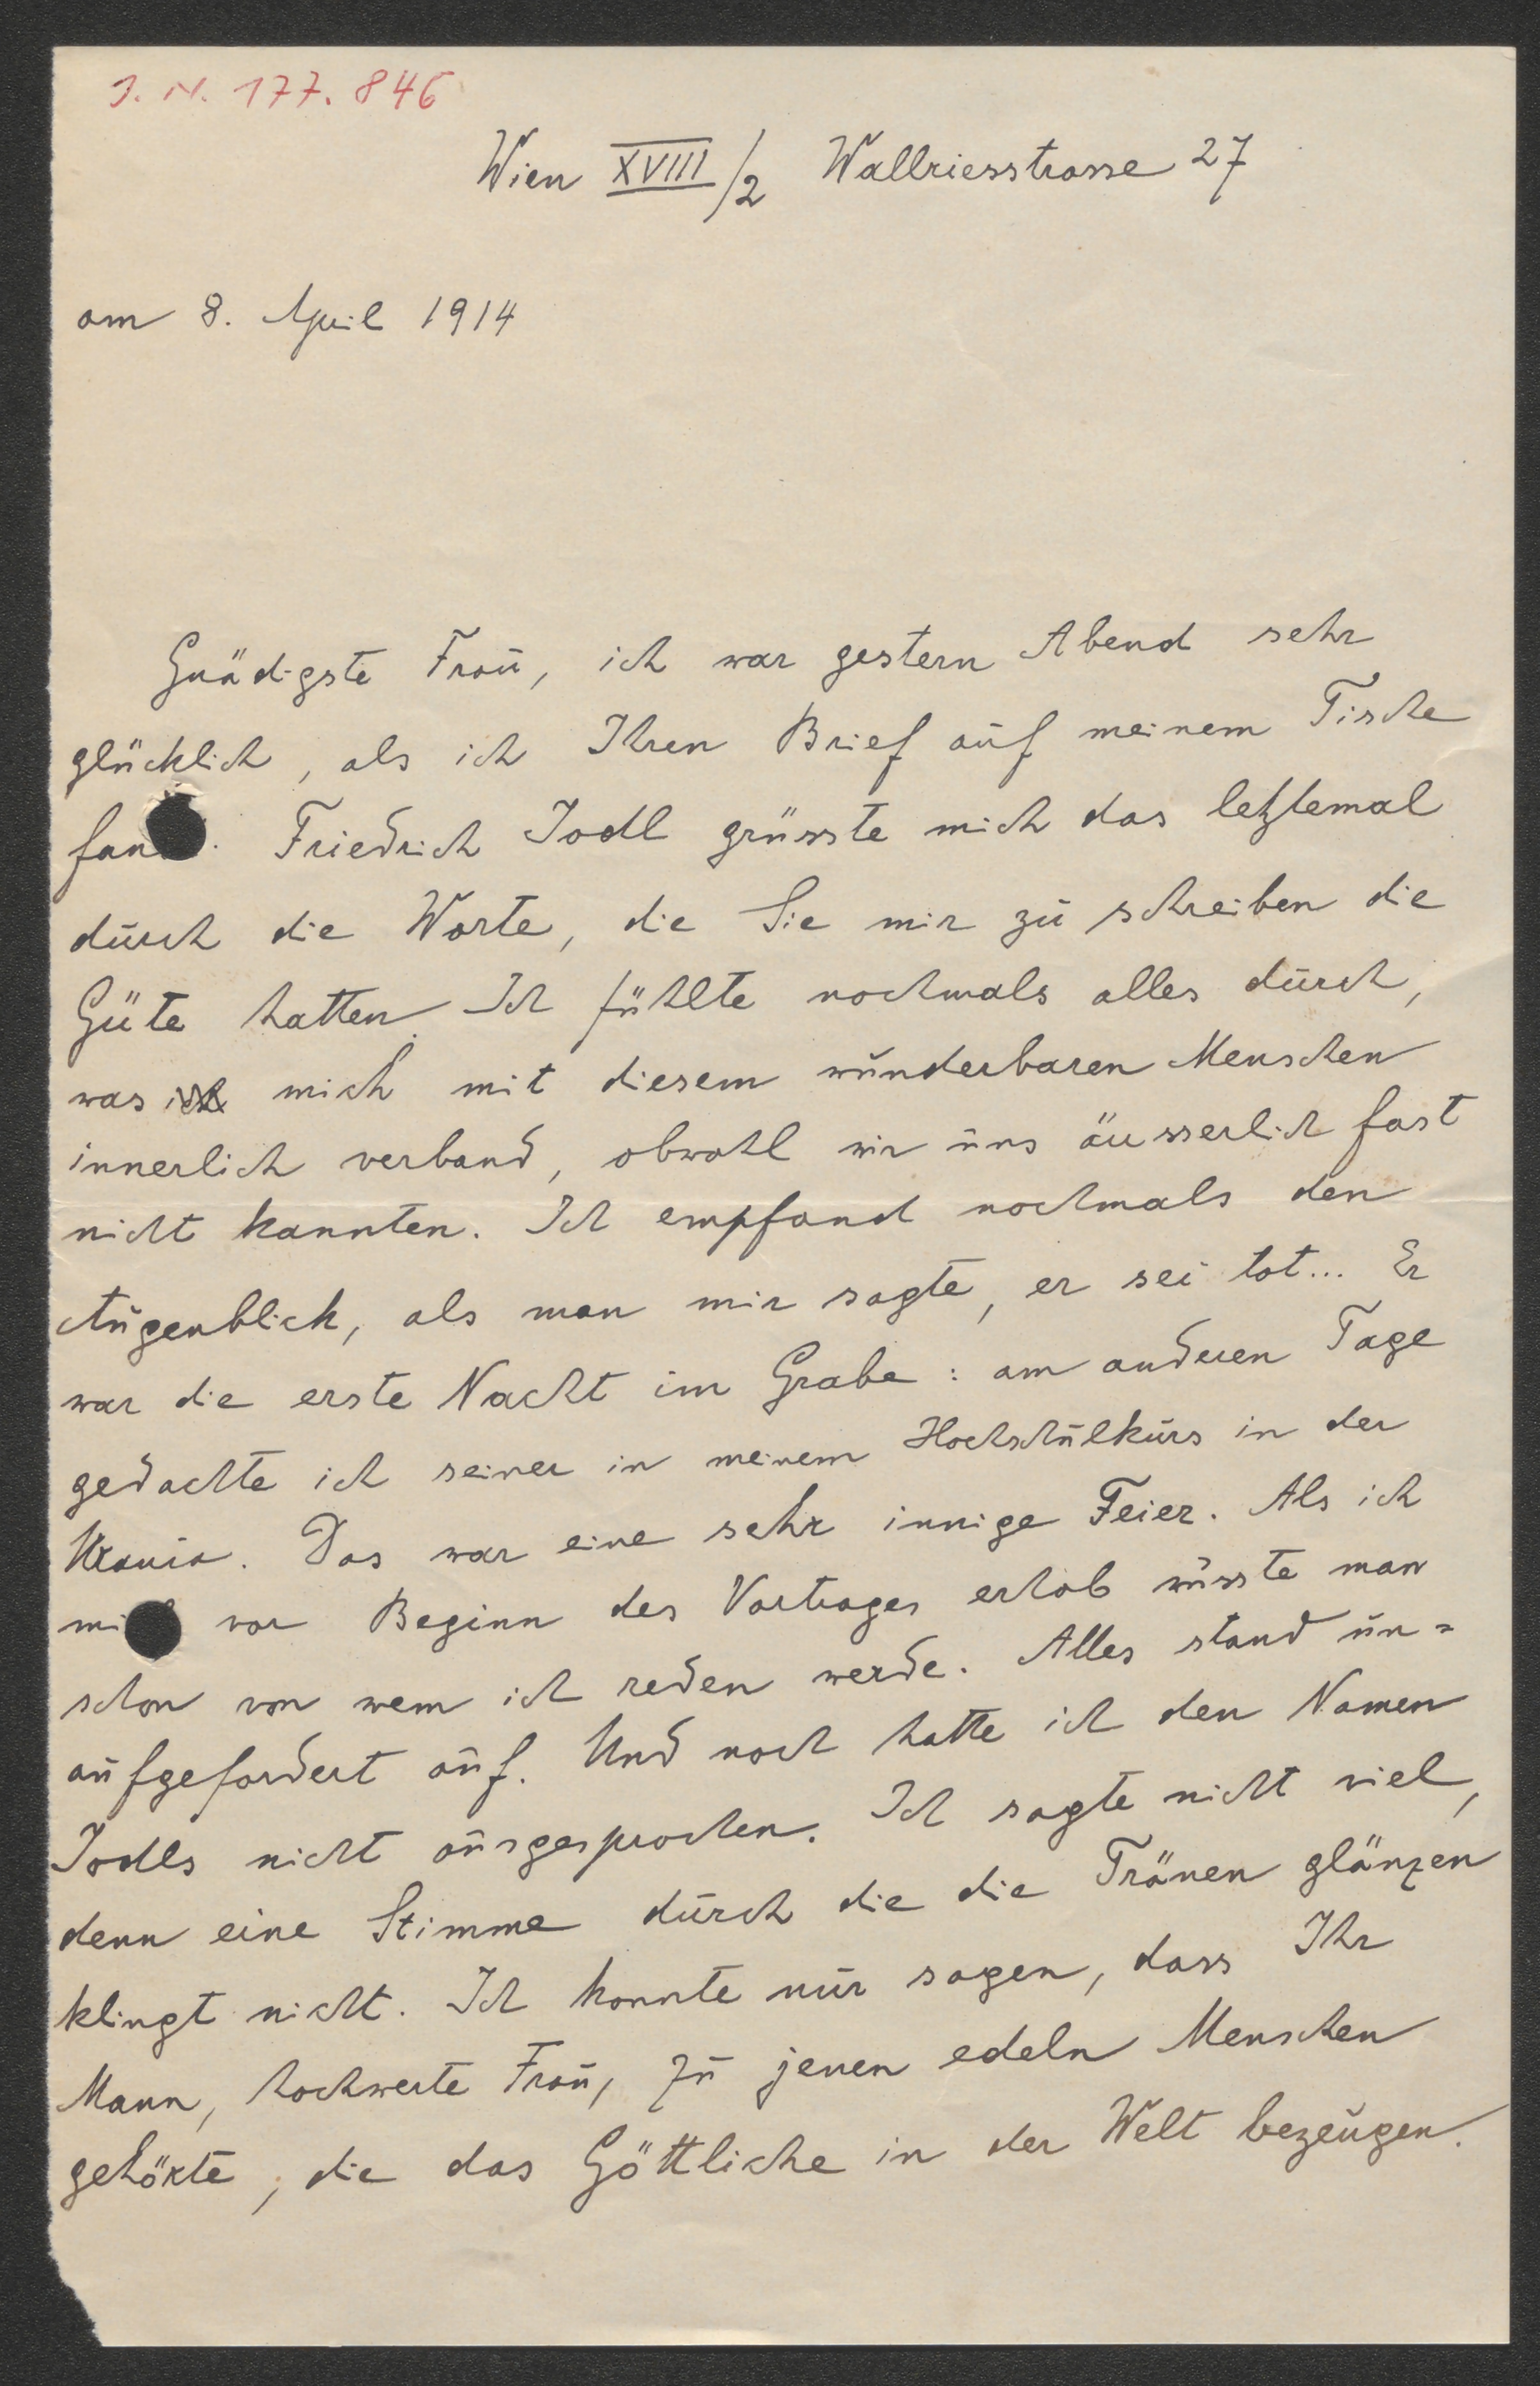 J. N. 177.846
Wien XVIII/2 Wallriesstrasse 27
am 8. April 1914
Gnädigste Frau, ich war gestern Abend sehr
glücklich, als ich Ihren Brief auf meinem Tische
fand. Friedrich Jodl grüsste mich das letztemal
durch die Worte, die Sie mir zu schreiben die
Güte hatten. Ich fühlte nochmals alles durch,
was ich mich mit diesem wunderbaren Menschen
innerlich verband, obwohl wir uns äusserlich fast
nicht kannten. Ich empfand nochmals den
Augenblick, als man mir sagte, er sei tot... Er
war die erste Nacht im Grabe: am anderen Tage
gedachte ich seiner in meinem Hochschulkurs in der
Urania. Das war eine sehr innige Feier. Als ich
mich vor Beginn des Vortrages erhob wusste man
schon von wem ich reden werde. Alles stand un=
aufgefordert auf. Und noch hatte ich den Namen
Jodls nicht ausgesprochen. Ich sagte nicht viel,
denn eine Stimme durch die die Tränen glänzen
klingt nicht. Ich konnte nur sagen, dass Ihr
Mann, hochwerte Frau, zu jenen edeln Menschen
gehörte, die das Göttliche in der Welt bezeugen.